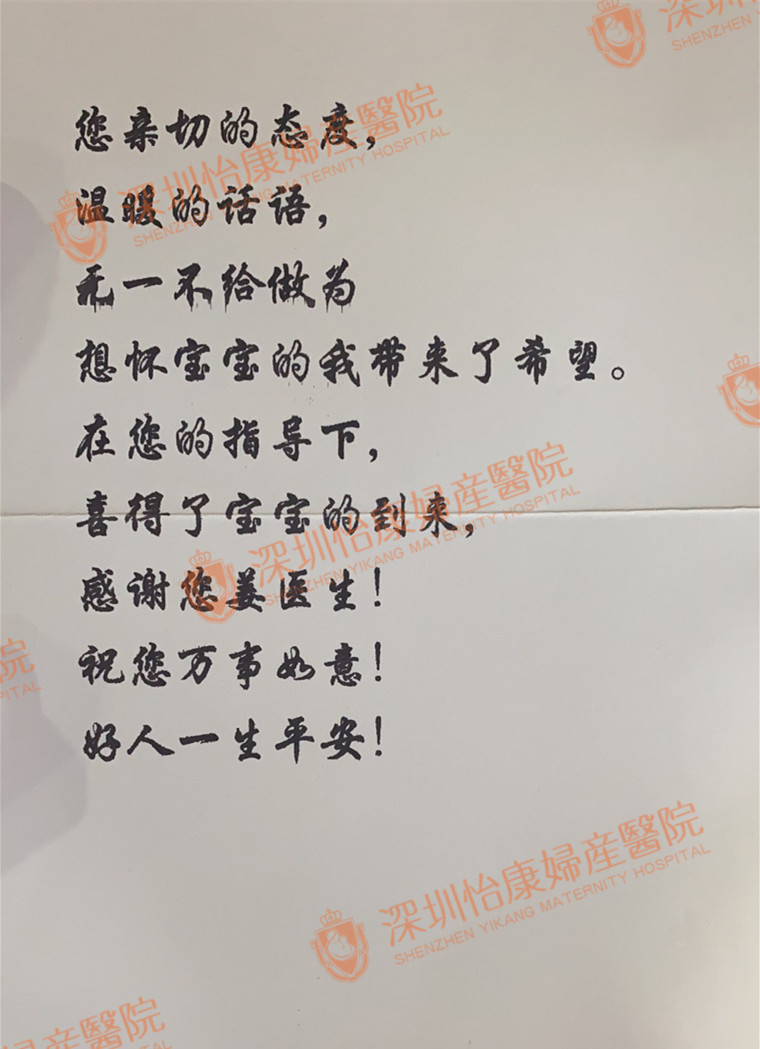 深圳
SHENZHEN
您亲切的态度，
深圳怡康婦産醫院
SHENZHEN YIKANG MATERNITY HOSPITAL
温暖的话语，
无一不给做为
想怀宝宝的我带来了希望。
在您的指导下，
喜得了宝宝的到来，
深圳怡康婦産醫院
SHENZHEN YIKANG MATERNITY HOSPITAL
感谢您姜医生！
祝您万事如意！
好人一生平安！
深圳怡康婦産醫院
SHENZHEN YIKANG MATERNITY HOSPITAL
康婦産醫院
MATERNITY HOSPITAL